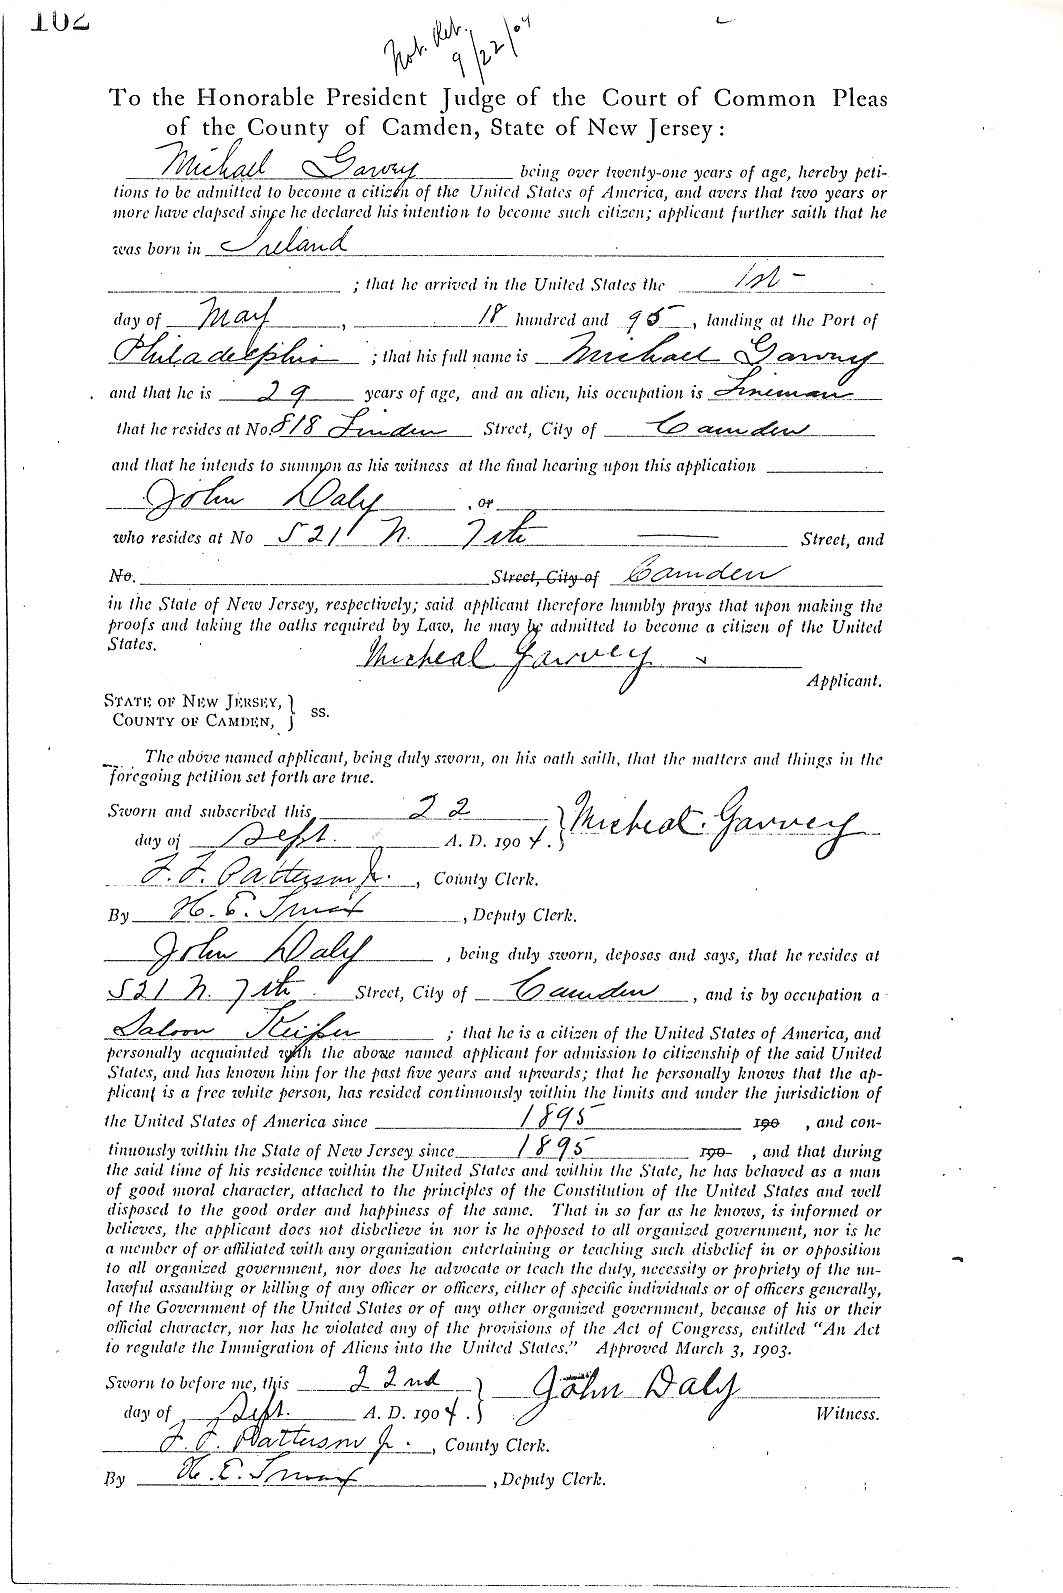 102
Not. Ret.
9/22/04
To the Honorable President Judge of the Court of Common Pleas
of the County of Camden, State of New Jersey:
Michael Garvey being over twenty-one years of age, hereby peti-
tions to be admitted to become a citizen of the United States of America, and avers that two years or
more have elapsed since he declared his intention to become such citizen; applicant further saith that he
was born in Ireland
; that he arrived in the United States the 1st
day of May, 18 hundred and 95, landing at the Port of
Philadelphia; that his full name is Michael Garvey
and that he is 29 years of age, and an alien, his occupation is Lineman
that he resides at No. 818 Linden Street, City of Camden
and that he intends to summon as his witness at the final hearing upon this application
John Daly, or
who resides at No 521 N. 7th Street, and
No. Street, City of Camden
in the State of New Jersey, respectively; said applicant therefore humbly prays that upon making the
proofs and taking the oaths required by Law, he may be admitted to become a citizen of the United
States.
Micheal Garvey
Applicant.
STATE OF NEW JERSEY, }
COUNTY OF CAMDEN, } ss.
The above named applicant, being duly sworn, on his oath saith, that the matters and things in the
foregoing petition set forth are true.
Sworn and subscribed this 22 } Micheal Garvey
day of Sept. A. D. 1904.
F. F. Patterson Jr., County Clerk.
By H. E. , Deputy Clerk.
John Daly, being duly sworn, deposes and says, that he resides at
521 N. 7th Street, City of Camden, and is by occupation a
Saloon Keeper; that he is a citizen of the United States of America, and
personally acquainted with the above named applicant for admission to citizenship of the said United
States, and has known him for the past five years and upwards; that he personally knows that the ap-
plicant is a free white person, has resided continuously within the limits and under the jurisdiction of
the United States of America since 1895 190 , and con-
tinuously within the State of New Jersey since 1895 190 , and that during
the said time of his residence within the United States and within the State, he has behaved as a man
of good moral character, attached to the principles of the Constitution of the United States and well
disposed to the good order and happiness of the same. That in so far as he knows, is informed or
believes, the applicant does not disbelieve in nor is he opposed to all organized government, nor is he
a member of or affiliated with any organization entertaining or teaching such disbelief in or opposition
to all organized government, nor does he advocate or teach the duty, necessity or propriety of the un-
lawful assaulting or killing of any officer or officers, either of specific individuals or of officers generally,
of the Government of the United States or of any other organized government, because of his or their
official character, nor has he violated any of the provisions of the Act of Congress, entitled "An Act
to regulate the Immigration of Aliens into the United States." Approved March 3, 1903.
Sworn to before me, this 22nd } John Daly
day of Sept. A. D. 1904. Witness.
F. F. Patterson Jr., County Clerk.
By H. E. , Deputy Clerk.